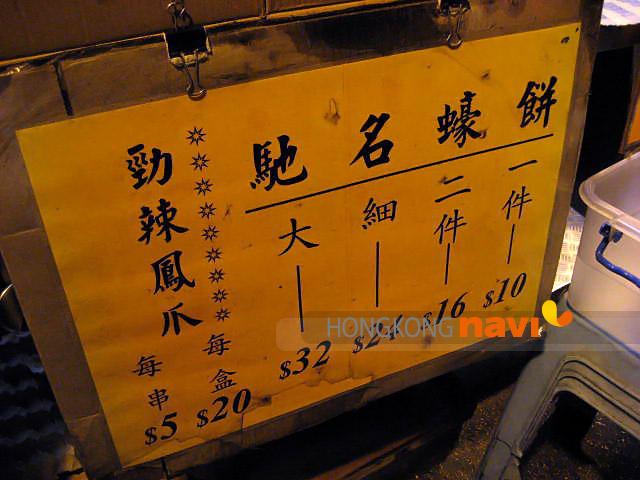 馳名蠔餅
大—$32
細—$24
二件—$16
一件—$10
勁辣鳳爪
每串$5
每盒$20
HONGKONG navi